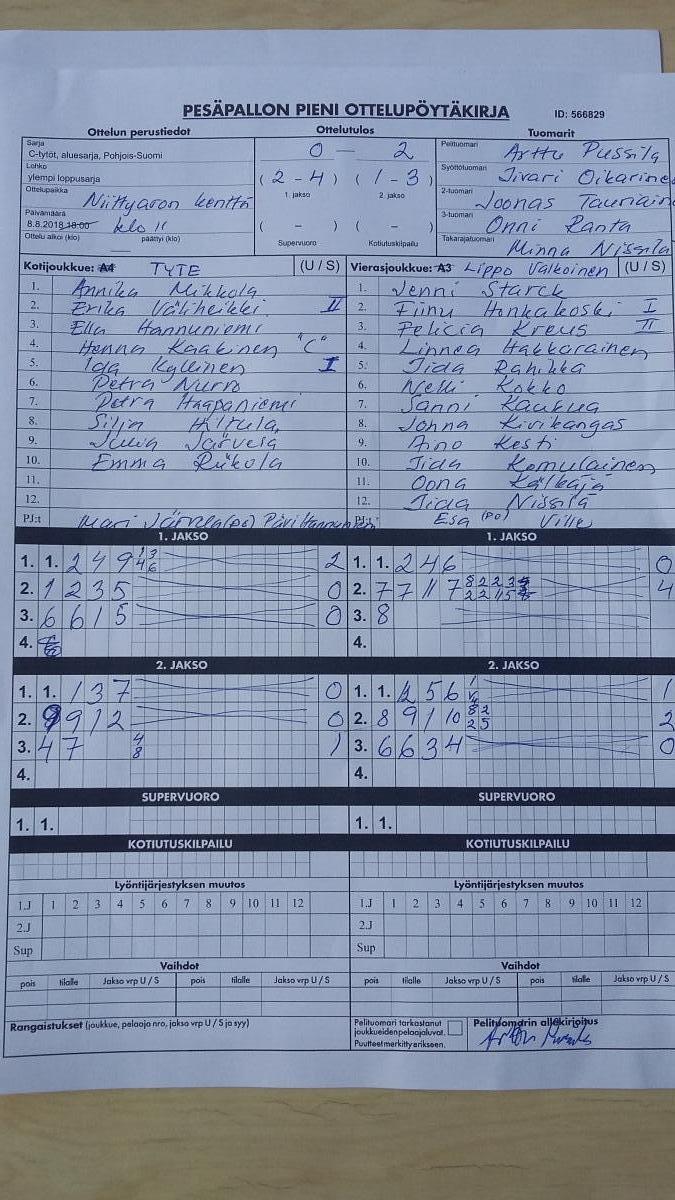 PESÄPALLON PIENI OTTELUPÖYTÄKIRJA ID: 566829
Ottelun perustiedot Ottelutulos Tuomarit
Sarja
C-tytöt, aluesarja, Pohjois-Suomi
Lohko
ylempi loppusarja
Ottelupaikka Niittyaron kenttä
Päivämäärä
8.8.2018 18:00 klo 11
Ottelu alkoi (klo) päättyi (klo)
0 – 2
(2 – 4) (1 – 3)
1. jakso 2. jakso
( – ) ( – )
Supervuoro Kotiutuskilpailu
Pelituomari Arttu Pussila
Syöttötuomari Iivari Oikarine
2-tuomari Joonas Tauriain
3-tuomari Onni Ranta
Takarajatuomari Minna Nissilä
Kotijoukkue: A4 TYTE (U / S)
1. Annika Mikkola
2. Erika Väliheikki II
3. Ella Hannuniemi
4. Henna Kaakinen "C"
5. Iida Kyllinen I
6. Petra Nurro
7. Petra Haapaniemi
8. Silja Hiltula
9. Julia Järvelä
10. Emma Riikola
11.
12.
PJ:t Mari Järvelä (po) Päivi Hannuniemi
Vierasjoukkue: A3 Lippo Valkoinen (U / S)
1. Jenni Starck
2. Fiinu Honkakoski I
3. Felicia Kreus II
4. Linnea Hakkarainen
5. Iida Rahikka
6. Nelli Kokko
7. Sanni Kaukua
8. Johna Kivikangas
9. Aino Kesti
10. Iida Komulainen
11. Oona Kälkäjä
12. Iida Nissilä
PJ:t Esa (po) Ville
1. JAKSO 1. JAKSO
1. 1. 2 4 9 9 13 46 2
2. 1 2 3 5 0
3. 6 6 1 5 0
4.
1. 1. 2 4 6 0
2. 7 7 11 7 4
3. 8
4.
2. JAKSO 2. JAKSO
1. 1. 1 3 7 0
2. 9 9 1 2 0
3. 4 7 4 8 1
4.
1. 1. 2 5 6 1
2. 8 9 1 10 82 25 2
3. 6 6 3 4 0
4.
SUPERVUORO SUPERVUORO
1. 1. 1. 1.
KOTIUTUSKILPAILU KOTIUTUSKILPAILU
Lyöntijärjestyksen muutos Lyöntijärjestyksen muutos
1.J 1 2 3 4 5 6 7 8 9 10 11 12 1.J 1 2 3 4 5 6 7 8 9 10 11 12
2.J 2.J
Sup Sup
Vaihdot Vaihdot
pois tilalle Jakso vrp U / S pois tilalle Jakso vrp U / S pois tilalle Jakso vrp U / S pois tilalle Jakso vrp U / S
Rangaistukset (joukkue, pelaaja nro, jakso vrp U / S ja syy)
Pelituomari tarkastanut
joukkueiden pelaajaluvat.
Puutteet merkitty erikseen.
Pelituomarin allekirjoitus